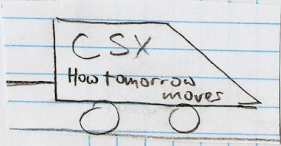 CSX
How tomorrow
moves